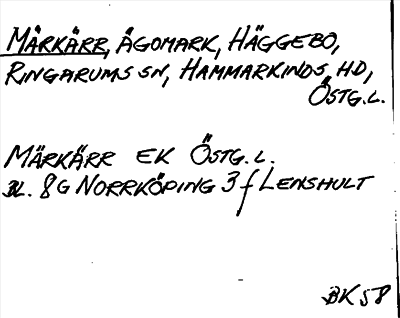 MÄRKÄRR, ÅGOMARK, HÄGGEBO,
RINGARUMS SN, HAMMARKINDS HD,
ÖSTG.L.
MÄRKÄRR EK ÖSTG.L.
BL. 8G NORRKÖPING 3f LENSHULT
BK 58